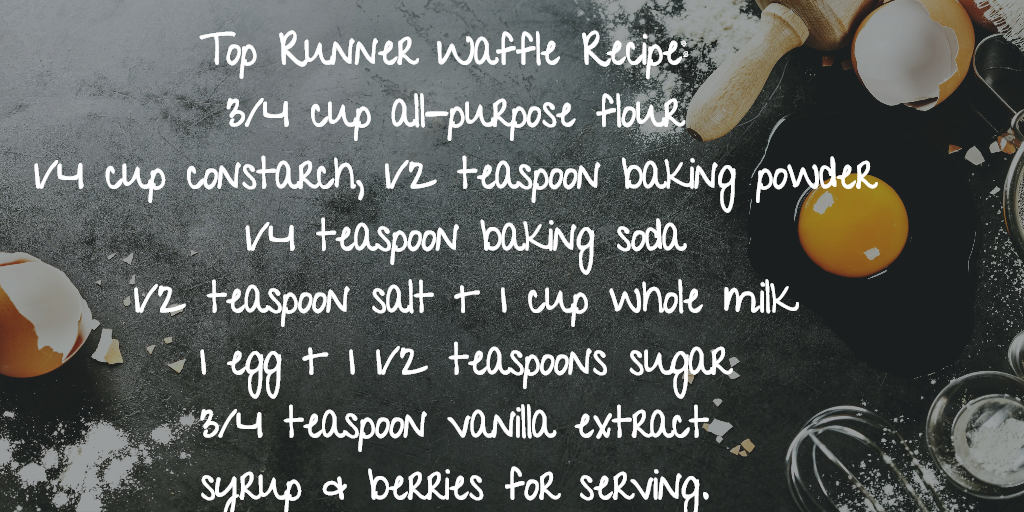 Top Runner Waffle Recipe:
3/4 cup all-purpose flour
1/4 cup constarch, 1/2 teaspoon baking powder
1/4 teaspoon baking soda
1/2 teaspoon salt + 1 cup whole milk
1 egg + 1 1/2 teaspoons sugar
3/4 teaspoon vanilla extract
syrup & berries for serving.